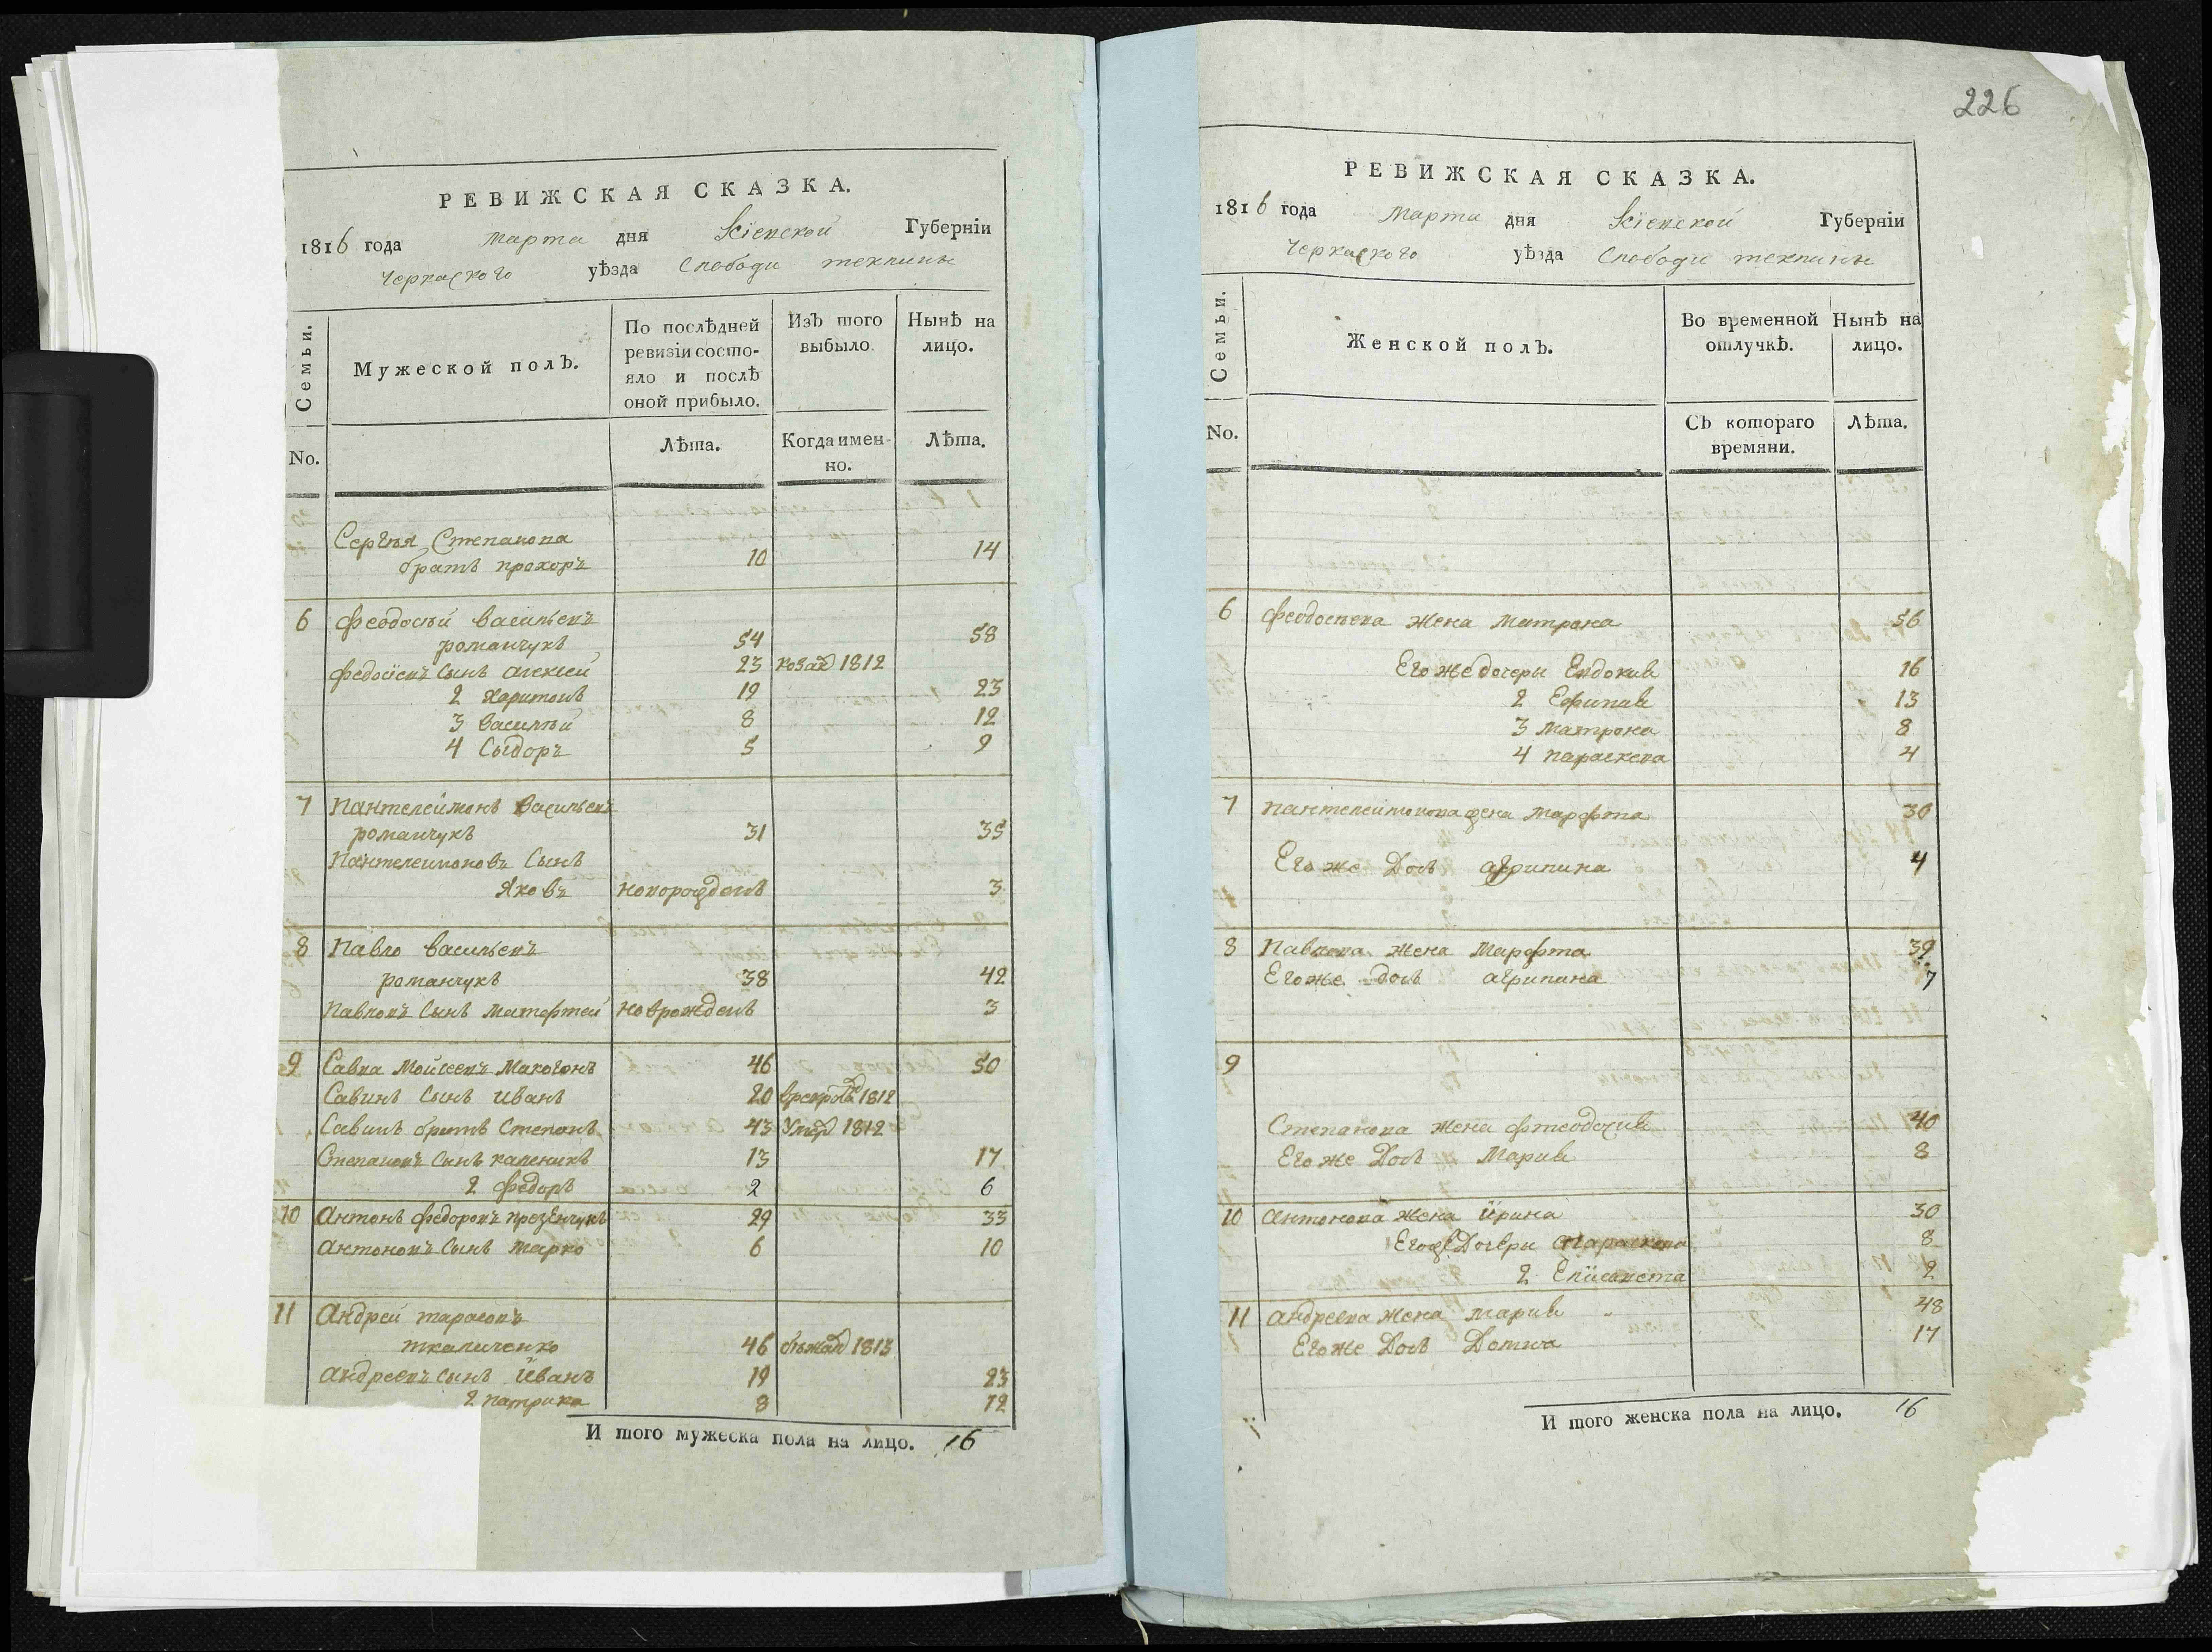 РЕВИЖСКАЯ СКАЗКА.
1816 года марта дня Кіевской Губерніи
Черкаского уѣзда Слободи теклини
Семьи.
Мужеской полъ.
По послѣдней ревизіи состояло и послѣ оной прибыло.
Изъ того выбыло
Нынѣ на лицо.
No.
Лѣта.
Когда именно.
Лѣта.
Сергѣя Степанова
братъ прохоръ 10 14
6 Феодосѣй васильевъ
романчукъ 54 58
Федосіевъ сынъ алексѣй 23 козак 1812
2 Харитонъ 19 23
3 василѣй 8 12
4 Сыдоръ 5 9
7 Пантелеймонъ васильевъ
романчукъ 31 35
Пантелеимоновъ Сынъ
Яковъ новорожденъ 3
8 Павло васильевъ
романчукъ 38 42
Павловъ Сынъ матфтей новрожденъ 3
9 Савва Мойсеевъ Макогонъ 46 50
Савинъ Сынъ иванъ 20 1812
Савинъ братъ Степанъ 43 Умер 1812
Степановъ Сынъ каленикъ 13 17
2 федоръ 2 6
10 антонъ федоровъ презенчукъ 29 33
антоновъ Сынъ марко 6 10
11 Андрей тарасовъ
ткаличенко 46 бѣжал 1813
андреевъ сынъ иванъ 19 23
2 патрика 8 12
И того мужеска пола на лицо. 16
226
РЕВИЖСКАЯ СКАЗКА.
1816 года марта дня Кіевской Губерніи
Черкаского уѣзда Слободи теклини
Семьи.
Женской полъ.
Во временной отлучкѣ.
Нынѣ на лицо.
No.
Съ котораго времяни.
Лѣта.
6 Феодосѣева жена матрона 56
Его же дочеры Евдокия 16
2 Ефимия 13
3 матрона 8
4 параскева 4
7 пантелеймонова жена марфта 30
Его же Дочъ агрипина 4
8 Павлова жена Марфта 39
Его же дочъ агрипина 7
9
Степанова жена фтеодосия 40
Его же Дочъ Мария 8
10 антонова жена ирина 30
Его же Дочеры параскева 8
2 Елисавета 2
11 андреева жена мария 48
Его же Дочъ Домна 17
И того женска пола на лицо. 16